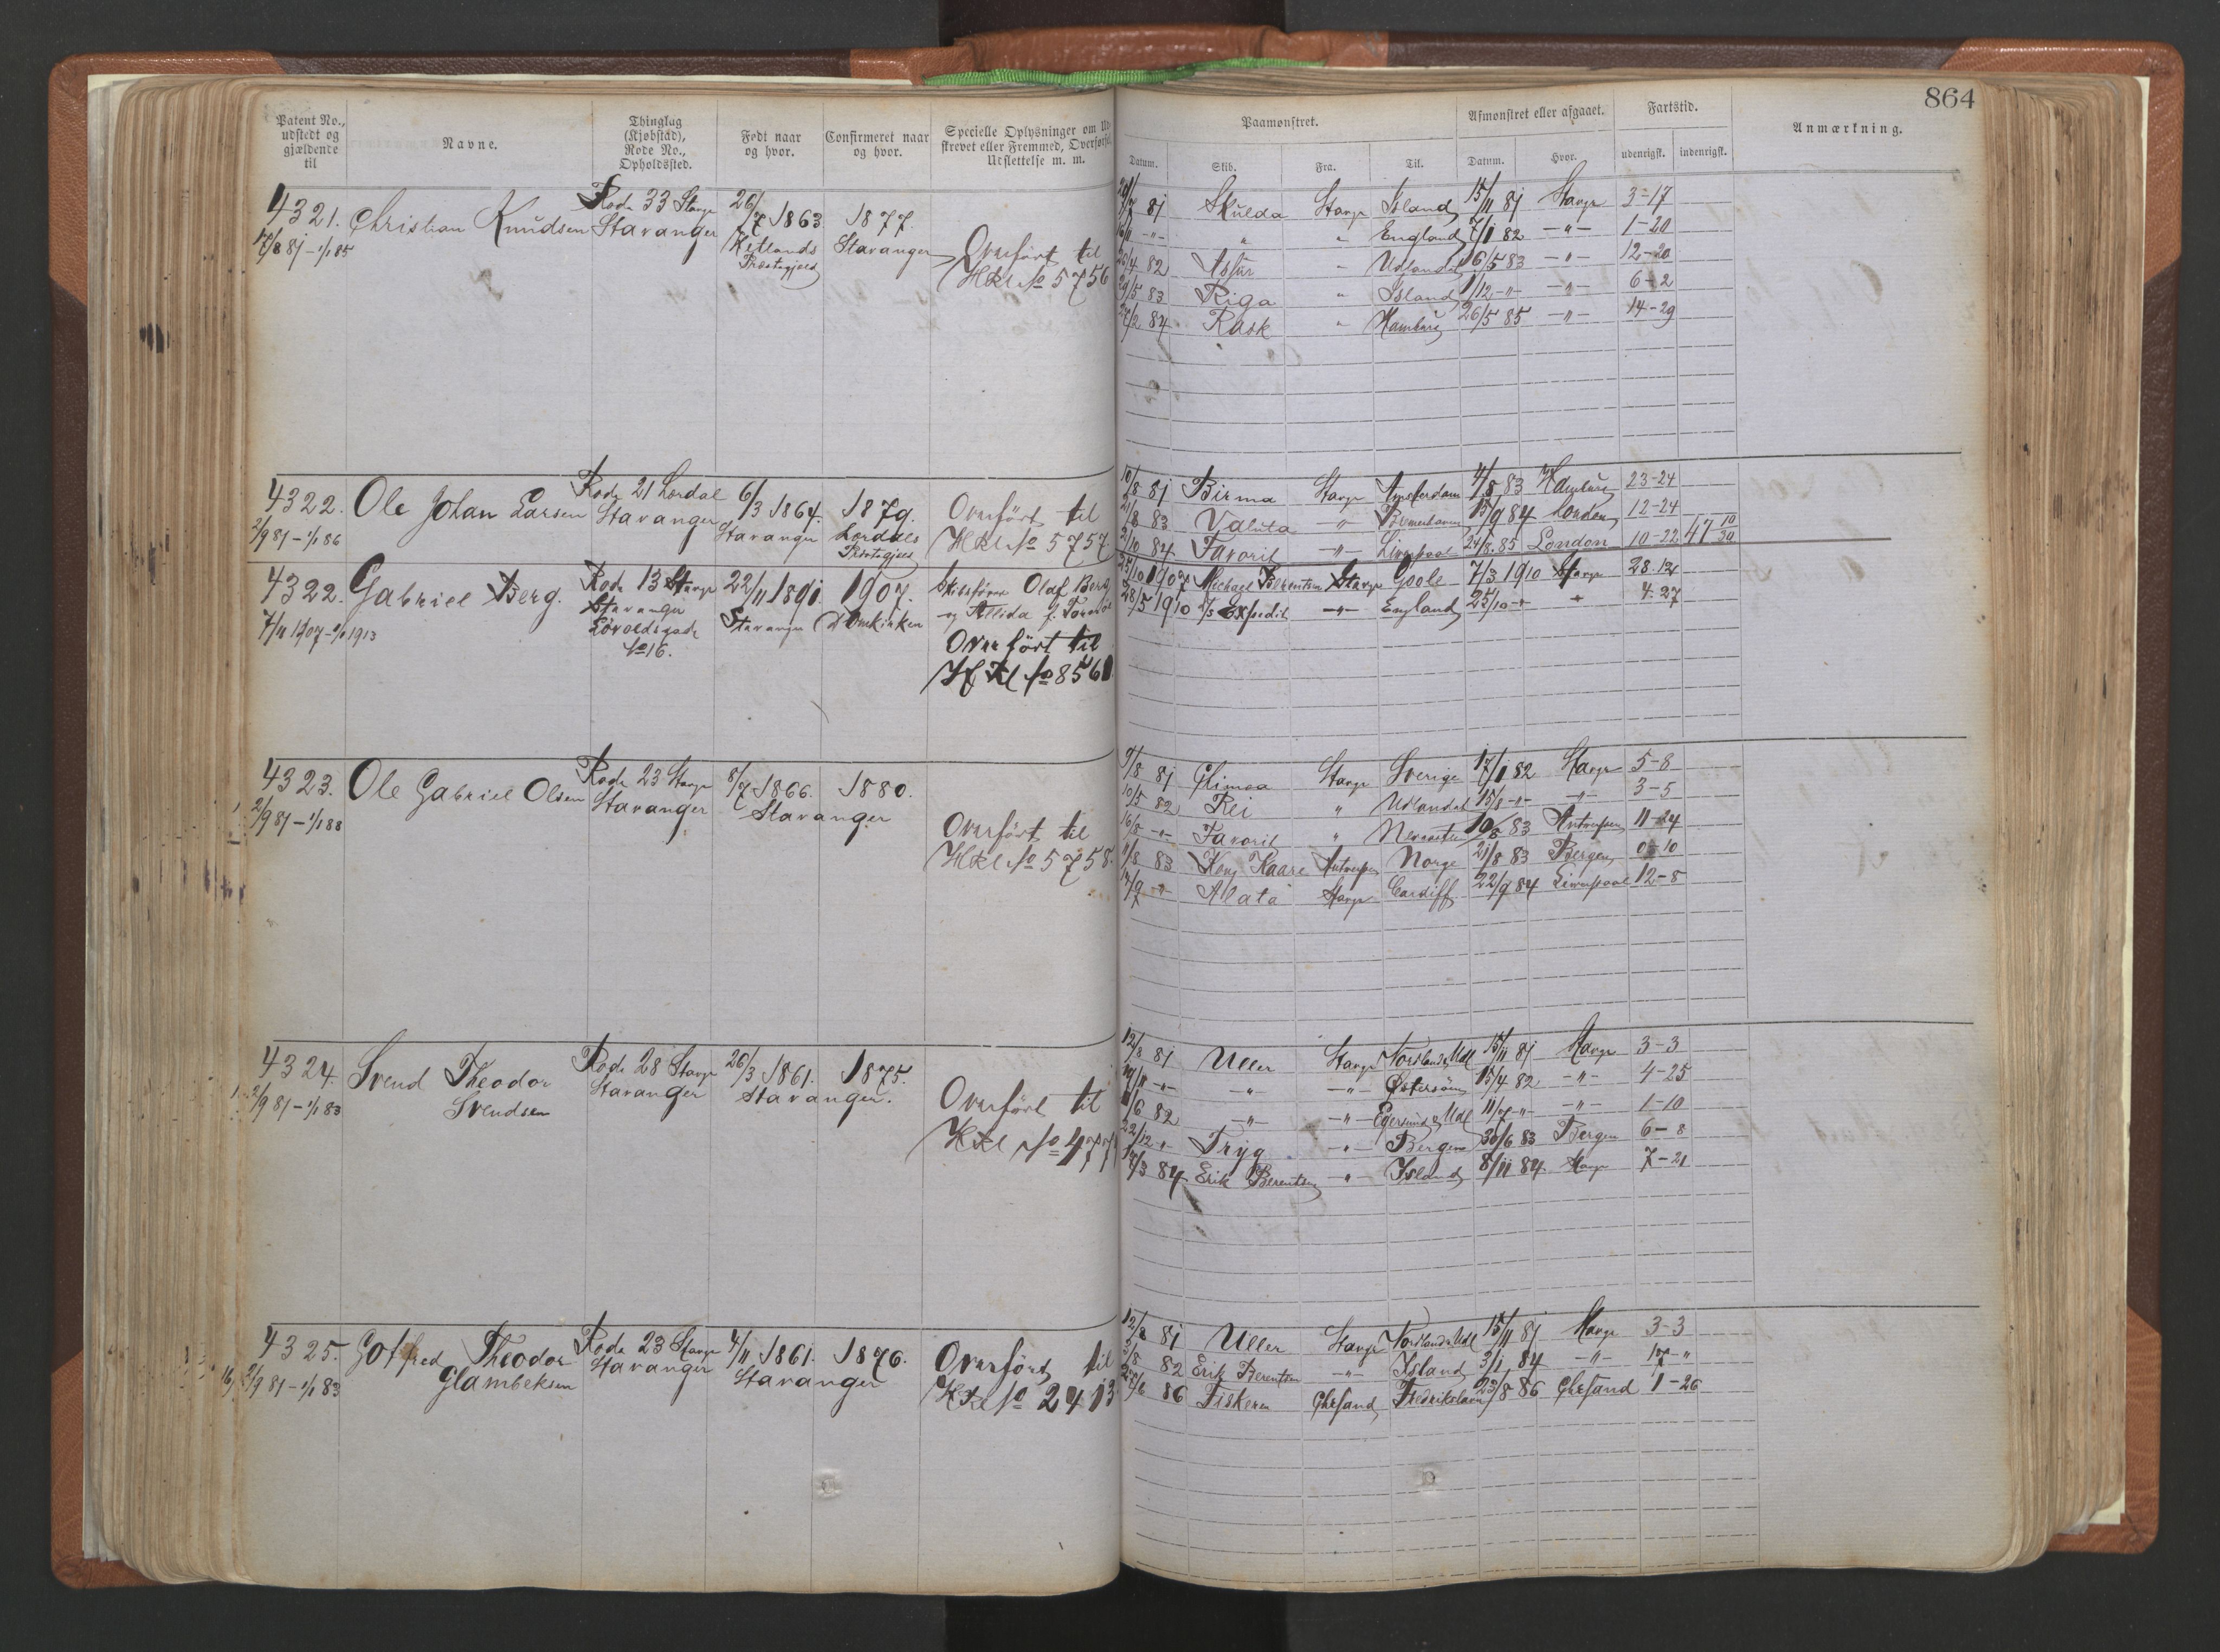 864
Patent No., udstedt og gjældende til
Navne.
Thinglag (Kjøbstad), Rode No., Opholdssted.
Født naar og hvor.
Confirmeret naar og hvor.
Specielle Oplysninger om Ud-
skrevet eller Fremmed, Overførsel,
Udslettelse m. m.
Paamønstret.
Afmønstret eller afgaaet.
Fartstid.
Anmærkning.
Datum. Skib. Fra. Til. Datum. Hvor. udenrigsk. indenrigsk.
4321. Christian Knudsen Rode 33 Stavgr 26/7 1863 1877.
17/8 81 – 1/1 85 Stavanger Hetlands Præstegjeld Stavanger
Overført til
HRl No 5756
81 Skulda Stavgr Island 15/11 81 Stavgr 3-17
" " England 7/1 82 -"- 1-20
82 Assur " Udlandet 6/5 83 -"- 12-20
83 Riga " Island 1/12 -"- -"- 6-2
84 Rask " Hamburg 26/5 85 -"- 14-29
4322. Ole Johan Larsen Rode 21 Lerdal 6/3 1864. 1879.
2/9 81 – 1/1 86 Stavanger Stavanger Lerdals Præstegjeld
Overført til
HRl No 5757
10/8 81 Birma Stavgr Amsterdam 4/8 83 Hamburg 23-24
83 Valuta -"- Bremerhaven 15/9 84 London 12-24
2/10 84 Favorit -"- Liverpool 24/8 85 London 10-22 47 10/30
4322. Gabriel Berg. Rode 13 Stavgr 22/11 1891. 1907.
7/11 1907 – 1/1 1913 Stavanger Løvoldsgade No 16. Stavanger Domkirken
Skibsfører Olaf Berg
og Allida f.
Overført til
HRl No 8561
1907 Michael Berentsen Stavgr Goole 7/3 1910 Stavgr 28-12
28/5 1910 D/S Expedit -"- England 25/10 -"- " 4-27
4323. Ole Gabriel Olsen Rode 23 Stavgr 8/7 1866. 1880.
2/9 81 – 1/1 88 Stavanger Stavanger
Overført til
HRl No 5758.
9/8 81 Glimea Stavgr Sverige 17/1 82 Stavgr 5-8
10/5 82 Rei " Udlandet 15/8 -"- -"- 3-5
16/8 -"- Favorit " 10/8 83 Antwerpen 11-24
11/8 83 Kong Kaare Antwerpen Norge 21/8 83 Bergen 0-10
14/9 -"- Alata Stavgr Cardiff 22/9 84 Liverpool 12-8
4324. Svend Theodor Svendsen Rode 28 Stavgr 26/3 1861. 1875.
2/9 81 – 1/1 83 Stavanger Stavanger.
Overført til
HRl No 477
12/8 81 Uller Stavgr Nordland & Udl 15/11 81 Stavgr 3-3
-"- -"- -"- Østersøen 15/4 82 -"- 4-25
1/6 82 -"- -"- Egersund & Udl 11/7 -"- -"- 1-10
22/12 -"- Tryg -"- Bergen 30/6 83 Bergen 6-8
84 Erik Berentsen -"- Island 8/11 84. Stavgr 7-21
4325. Gotfred Theodor Glambeksen Rode 23 Stavgr 4/11 1861. 1876.
2/9 81 – 1/1 83 Stavanger Stavanger
Overført til
HRl No 2413
12/8 81 Uller Stavgr Nordland & Udl 15/11 81 Stavgr 3-3
3/8 82 Erik Berentsen -"- Island 3/1 84 -"- 17-"
86 Fiskeren Chrsand Fredrikshavn 23/8 86 Chrsand 1-26